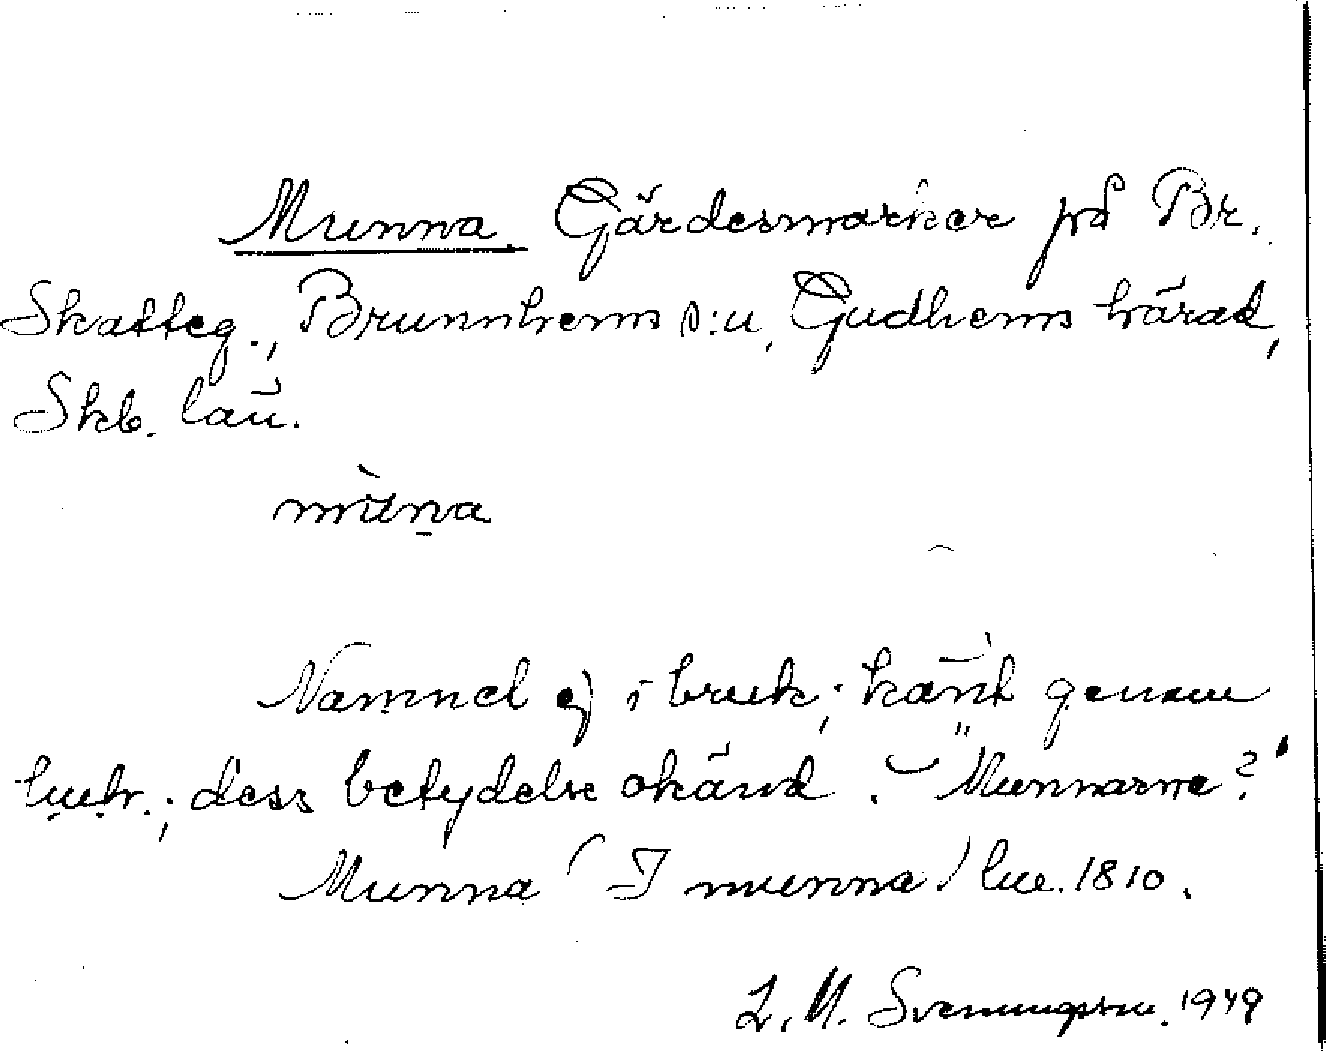 Munna. Gärdesmarker på Br.
Skatteg., Brunnhems s:n, Gudhems härad,
Skb. län.
mùna
Namnet ej i bruk; känt genom
dess betydelse okänd. - "Munnarne?"
Munna (I munna) 1810.
L. M. Svenungsson. 1949